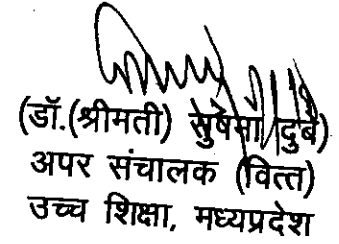 (डॉ.(श्रीमती) सुषमा दुबे)
अपर संचालक (वित्त)
उच्च शिक्षा, मध्यप्रदेश